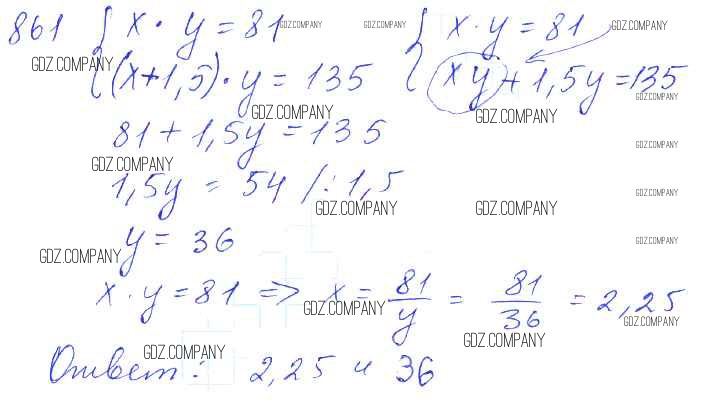 861 { x · y = 81 { x · y = 81
GDZ.COMPANY GDZ.COMPANY GDZ.COMPANY
(x+1,5) · y = 135 xy + 1,5y = 135
GDZ.COMPANY GDZ.COMPANY
GDZ.COMPANY GDZ.COMPANY
81 + 1,5y = 135
GDZ.COMPANY
GDZ.COMPANY
1,5y = 54 /: 1,5
GDZ.COMPANY
GDZ.COMPANY GDZ.COMPANY
y = 36
GDZ.COMPANY
GDZ.COMPANY
x · y = 81 => x = 81/y = 81/36 = 2,25
GDZ.COMPANY GDZ.COMPANY
GDZ.COMPANY
GDZ.COMPANY
Ответ: 2,25 и 36